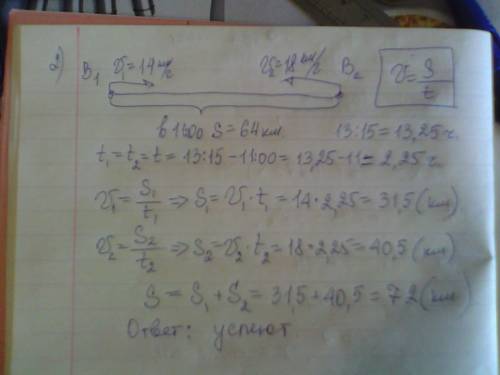 2) B₁ v₁=14 км/с v₂=18 км/с B₂ v=S/t
в 11:00 S=64 км. 13:15=13,25 ч.
t₁=t₂=t=13:15-11:00=13,25-11=2,25 ч.
v₁=S₁/t₁ ⇒ S₁=v₁·t₁=14·2,25=31,5 (км)
v₂=S₂/t₂ ⇒ S₂=v₂·t₂=18·2,25=40,5 (км)
S=S₁+S₂=31,5+40,5=72 (км)
Ответ: успеют